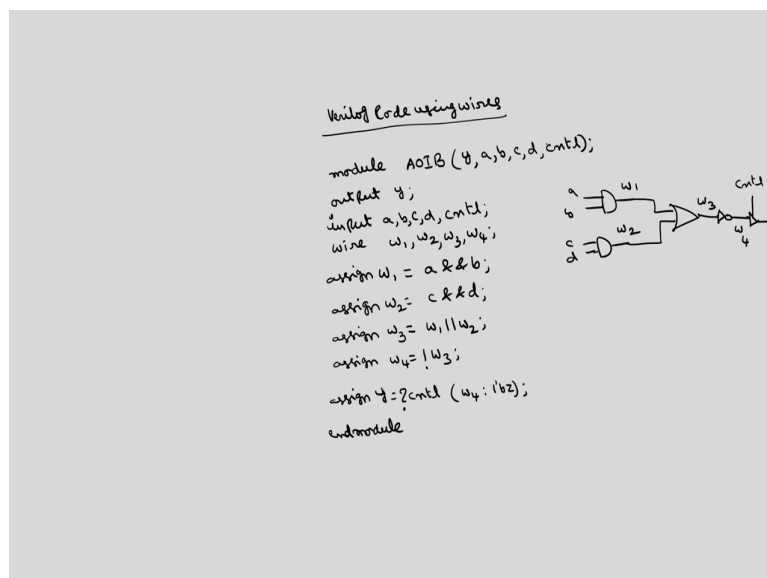 Verilog Code using wires
module AOIB (y,a,b,c,d,cntl);
output y;
input a,b,c,d,cntl;
wire w1,w2,w3,w4;
assign w1 = a&&b;
assign w2= c&&d;
assign w3= w1||w2;
assign w4=!w3;
assign y=?cntl (w4:1'bz);
endmodule
a
b
w1
c
d
w2
w3
w4
cntl